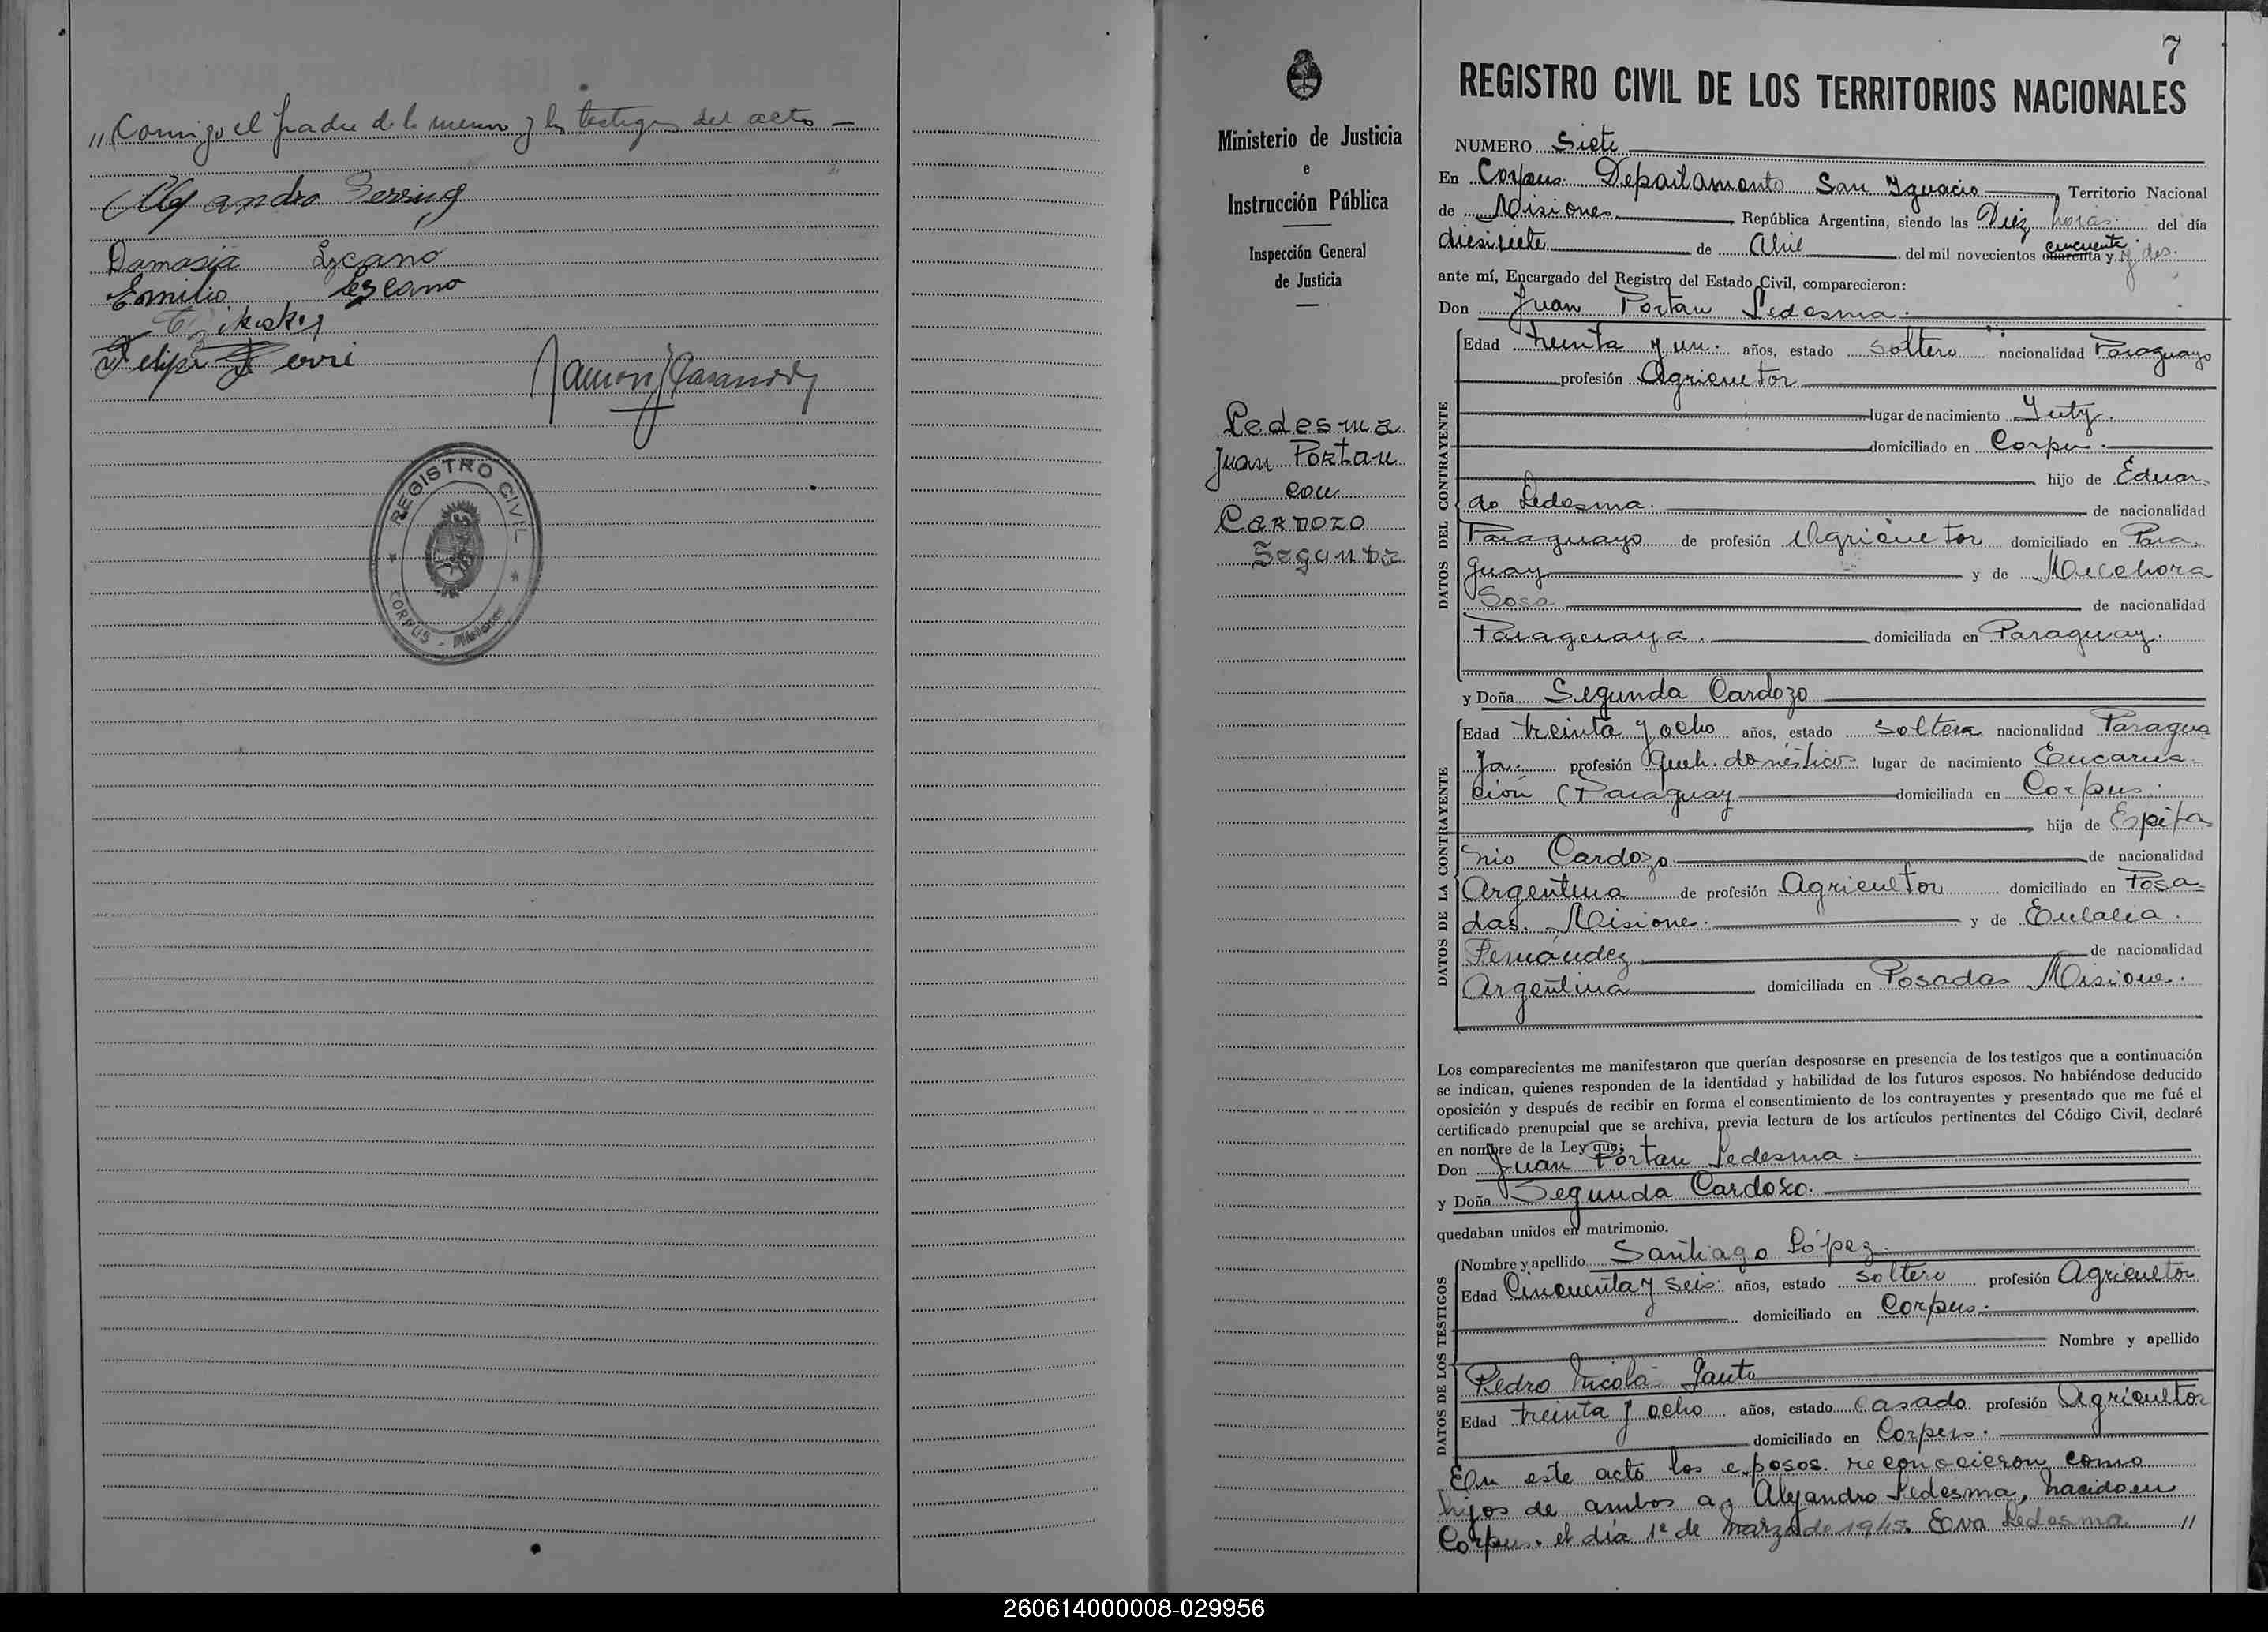 "Conmigo el padre de la menor y los testigos del acto —
Damasia Lezcano
Emilio Lezcano
Felipe
REGISTRO CIVIL
CORPUS - Misiones
Ministerio de Justicia
e
Instrucción Pública
Inspección General
de Justicia
Ledesma
Juan Portau
con
Cardozo
Segunda
7
REGISTRO CIVIL DE LOS TERRITORIOS NACIONALES
NUMERO Siete
En Corpus Departamento San Ignacio Territorio Nacional
de Misiones República Argentina, siendo las Diez horas del día
diesisiete de Abril del mil novecientos cuarenta y cincuenta y dos.
ante mí, Encargado del Registro del Estado Civil, comparecieron:
Don Juan Portau Ledesma.
DATOS DEL CONTRAYENTE
Edad treinta y un. años, estado soltero nacionalidad Paraguayo
profesión Agricultor
lugar de nacimiento Yuty.
domiciliado en Corpus.
hijo de Eduar-
do Ledesma. de nacionalidad
Paraguayo de profesión Agricultor domiciliado en Para-
guay y de Melchora
Sosa de nacionalidad
Paraguaya. domiciliada en Paraguay.
y Doña Segunda Cardozo
DATOS DE LA CONTRAYENTE
Edad treinta y ocho años, estado soltera nacionalidad Paragua
ya. profesión Queh. domésticos lugar de nacimiento Encarna-
ción (Paraguay domiciliada en Corpus.
hija de Epifa
nio Cardozo de nacionalidad
Argentina de profesión Agricultor domiciliado en Posa-
das. Misiones. y de Eulalia.
Fernández. de nacionalidad
Argentina domiciliada en Posadas Misiones.
Los comparecientes me manifestaron que querían desposarse en presencia de los testigos que a continuación
se indican, quienes responden de la identidad y habilidad de los futuros esposos. No habiéndose deducido
oposición y después de recibir en forma el consentimiento de los contrayentes y presentado que me fué el
certificado prenupcial que se archiva, previa lectura de los artículos pertinentes del Código Civil, declaré
en nombre de la Ley que;
Don Juan Portau Ledesma.
y Doña Segunda Cardozo.
quedaban unidos en matrimonio.
DATOS DE LOS TESTIGOS
Nombre y apellido Santiago López.
Edad Cincuenta y seis. años, estado soltero profesión Agricultor
domiciliado en Corpus.
Nombre y apellido
Pedro Nicola Gauto
Edad treinta y ocho años, estado casado profesión Agricultor
domiciliado en Corpus.
En este acto los esposos. reconocieron como
hijos de ambos a, Alejandro Ledesma, nacido en
Corpus. el día 1º de Marzo de 1945. Eva Ledesma "
260614000008-029956